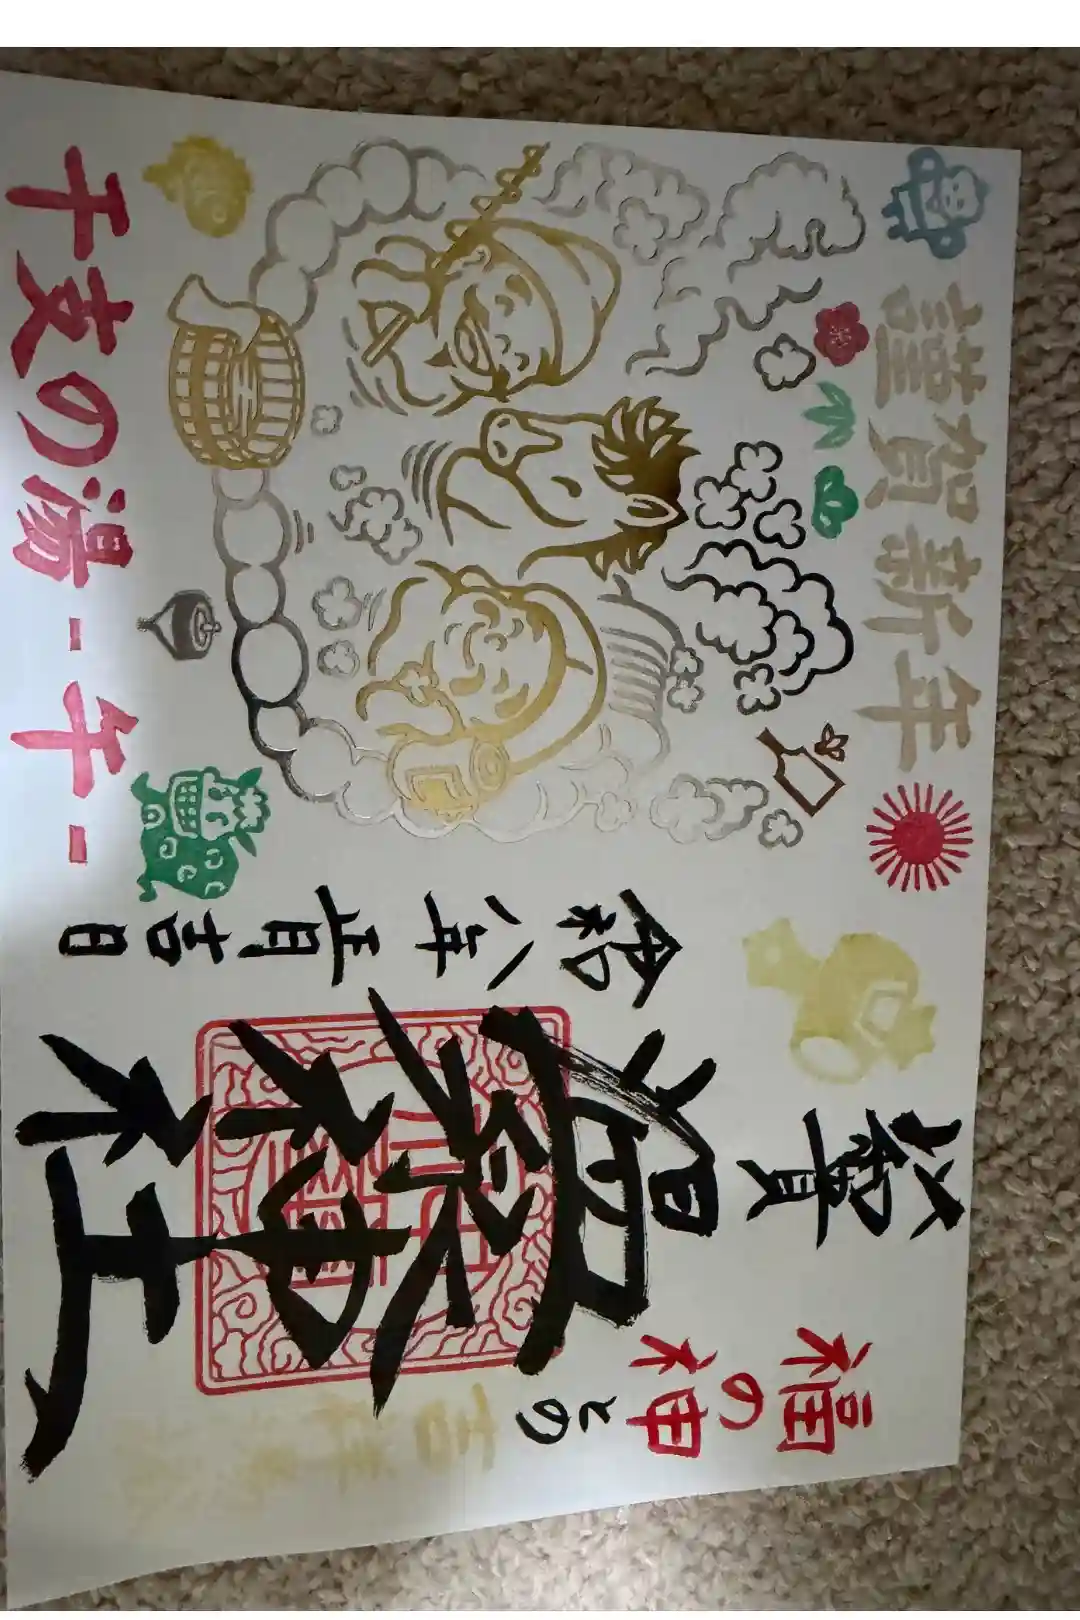 謹賀新年
福の神
との
湯倉神社
令和八年正月吉日
干支の湯-午-